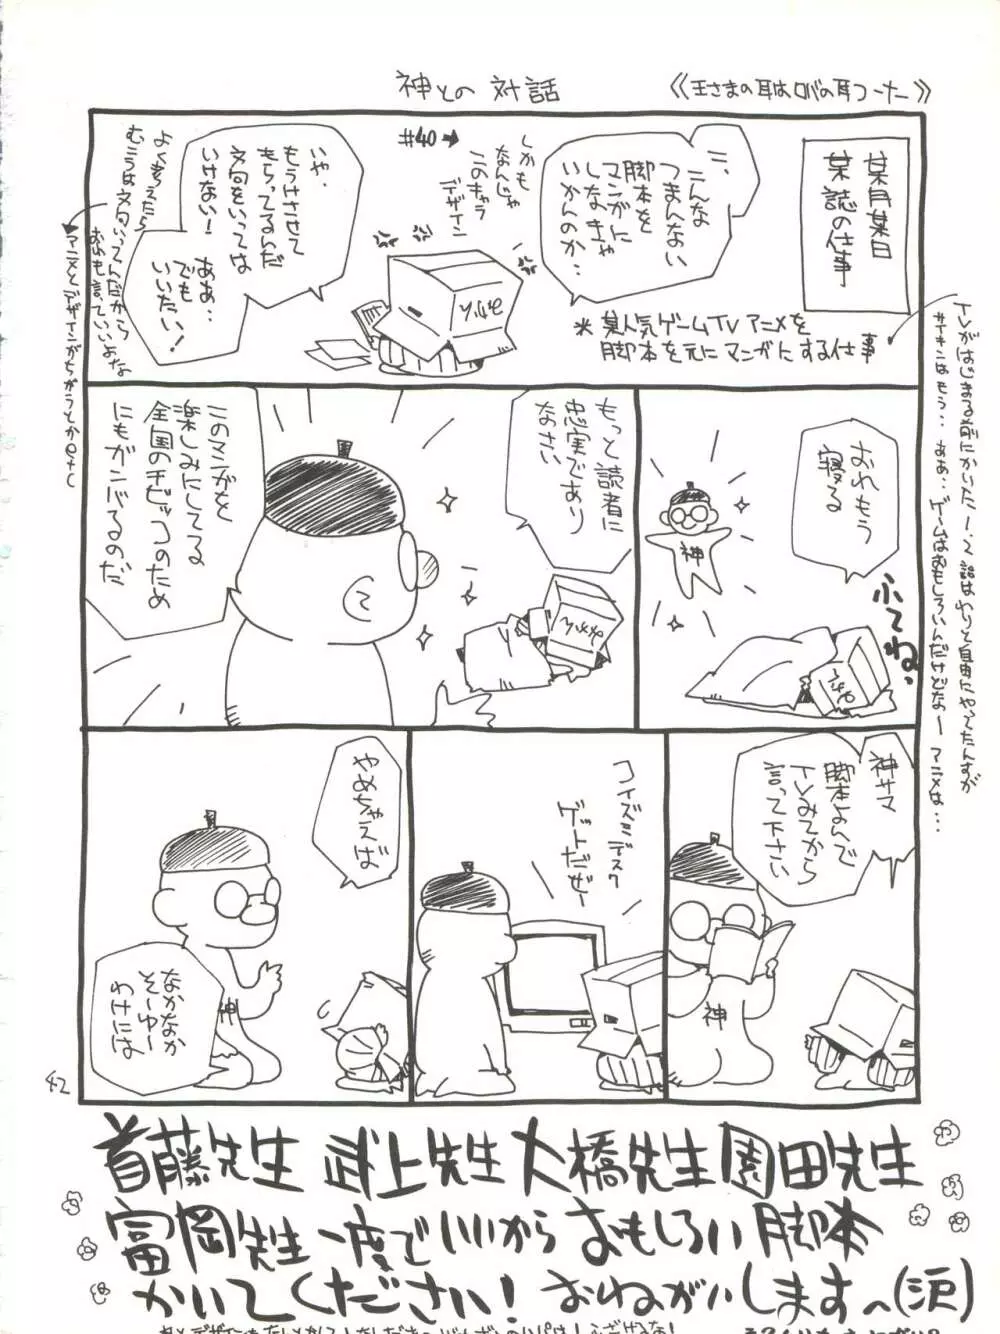 神との対話
《王さまの耳はロバの耳コーナー》
某月某日
某誌の仕事
こ、こんな
つまんない
脚本を
マンガに
しなきゃ
いかんのか…
しかも
なんじゃ
このキャラ
デザイン
#40→
*某人気ゲームTVアニメを
脚本を元にマンガにする仕事
いや、
もうけさせて
もらってるんだ
文句をいっては
いけない!
ああ…
でも
いいたい!
よく考えたら
むこうは文句いってんだから
おれも言っていいよな
アニメとデザインがちがうとかetc
TVがはじまる前にかいた1、2話はわりと自由にやってたんすが
サイキンはもう…ああ…ゲームはおもしろいんだけどなー アニメは…
おれもう
寝る
ふてね。
神
もっと読者に
忠実であり
なさい
このマンガを
楽しみにしてる
全国のチビッコのため
にもガンバるのだ
神サマ
脚本よんで
TVみてから
言って下さい
神
コイズミデスク
ゲットだぜー
やめちゃえば
なかなか
そーゆー
わけには
神
42
首藤先生 武上先生 大橋先生 園田先生
富岡先生 一度でいいからおもしろい脚本
かいてください! おねがいしますー(涙)